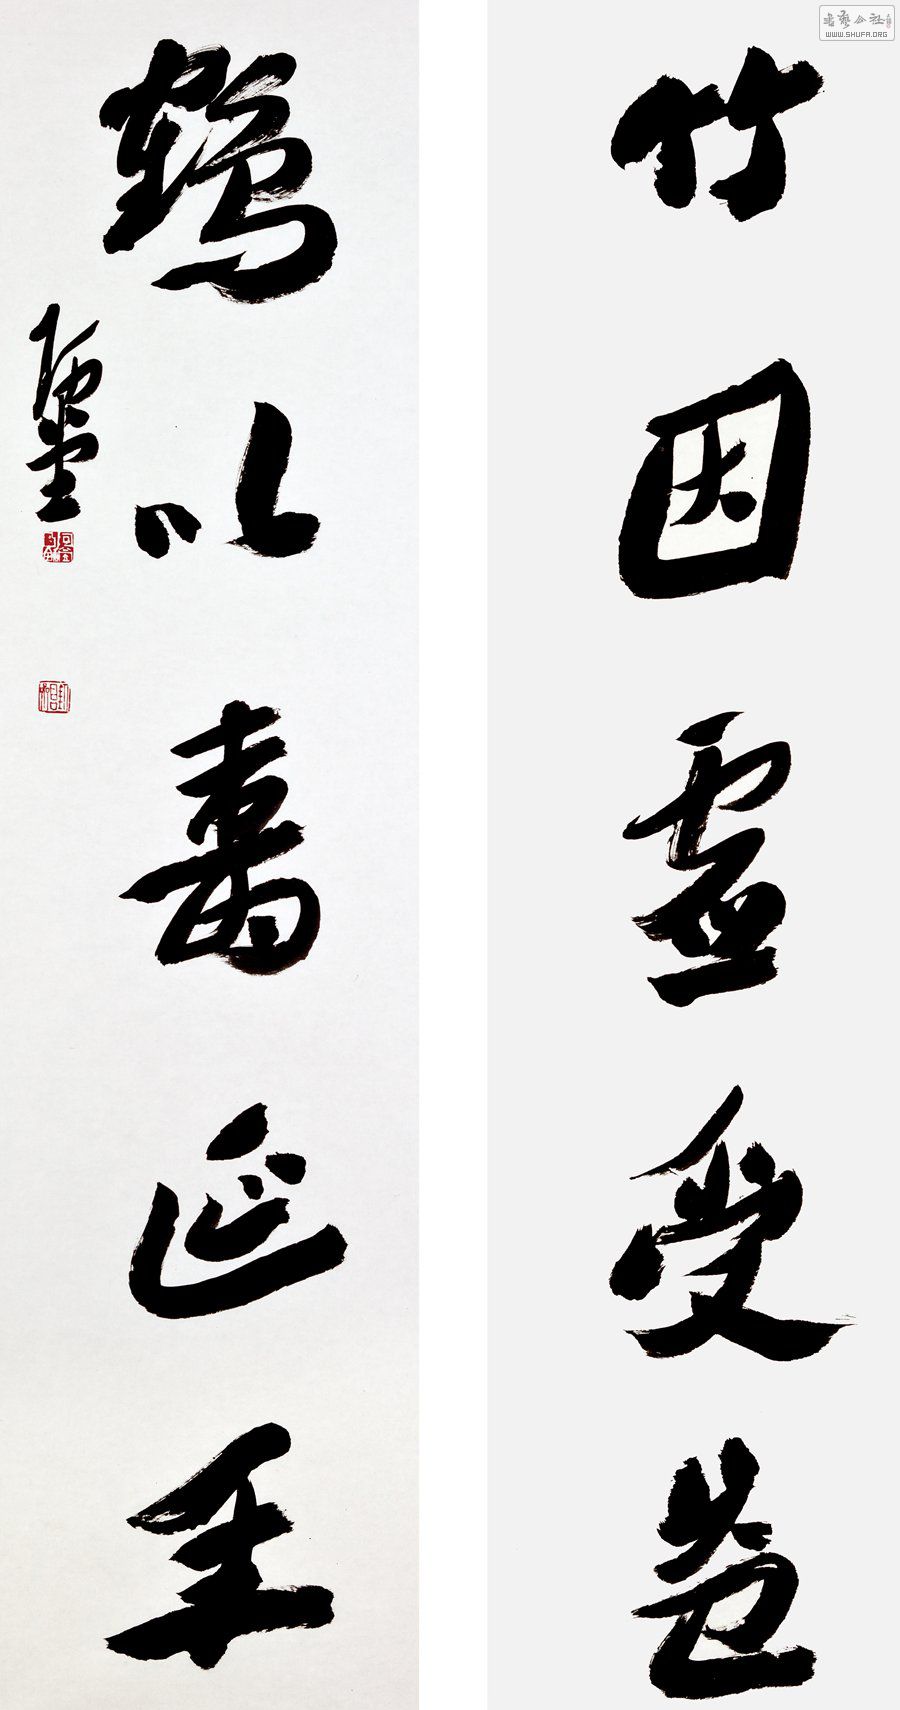 竹因虚受益
鶴以壽延年
书艺公社
WWW.SHUFA.ORG